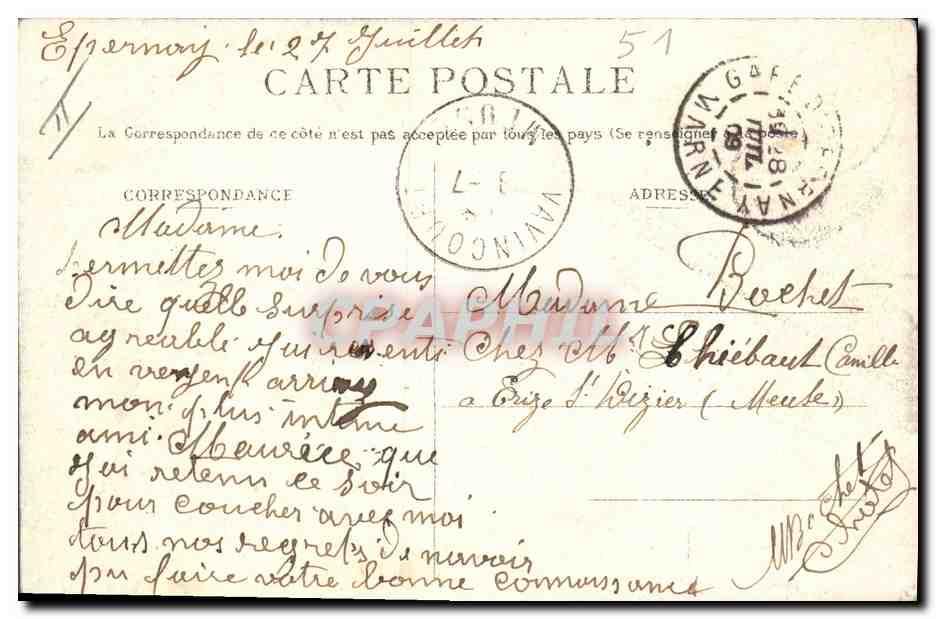 Epernay. le 27 Juillet
51
CARTE POSTALE
La Correspondance de ce côté n'est pas acceptée par tous les pays (Se renseigner à la poste)
CORRESPONDANCE
ADRESSE
GARE D'EPERNAY MARNE
28 JUIL 09
VAVINCOURT
MEUSE
Madame.
permettez moi de vous
dire quelle surprise
agreable j'ai
en arriver
mon plus intime
ami. Maurice que
j'ai retenu ce soir
pour coucher avec moi
tous nos regrets de n'avoir
pu faire votre bonne connaissance
Madame Rochet
Chez Mr Thiébaut Camille
a Erize St Dizier (Meuse)
CPAPHIL